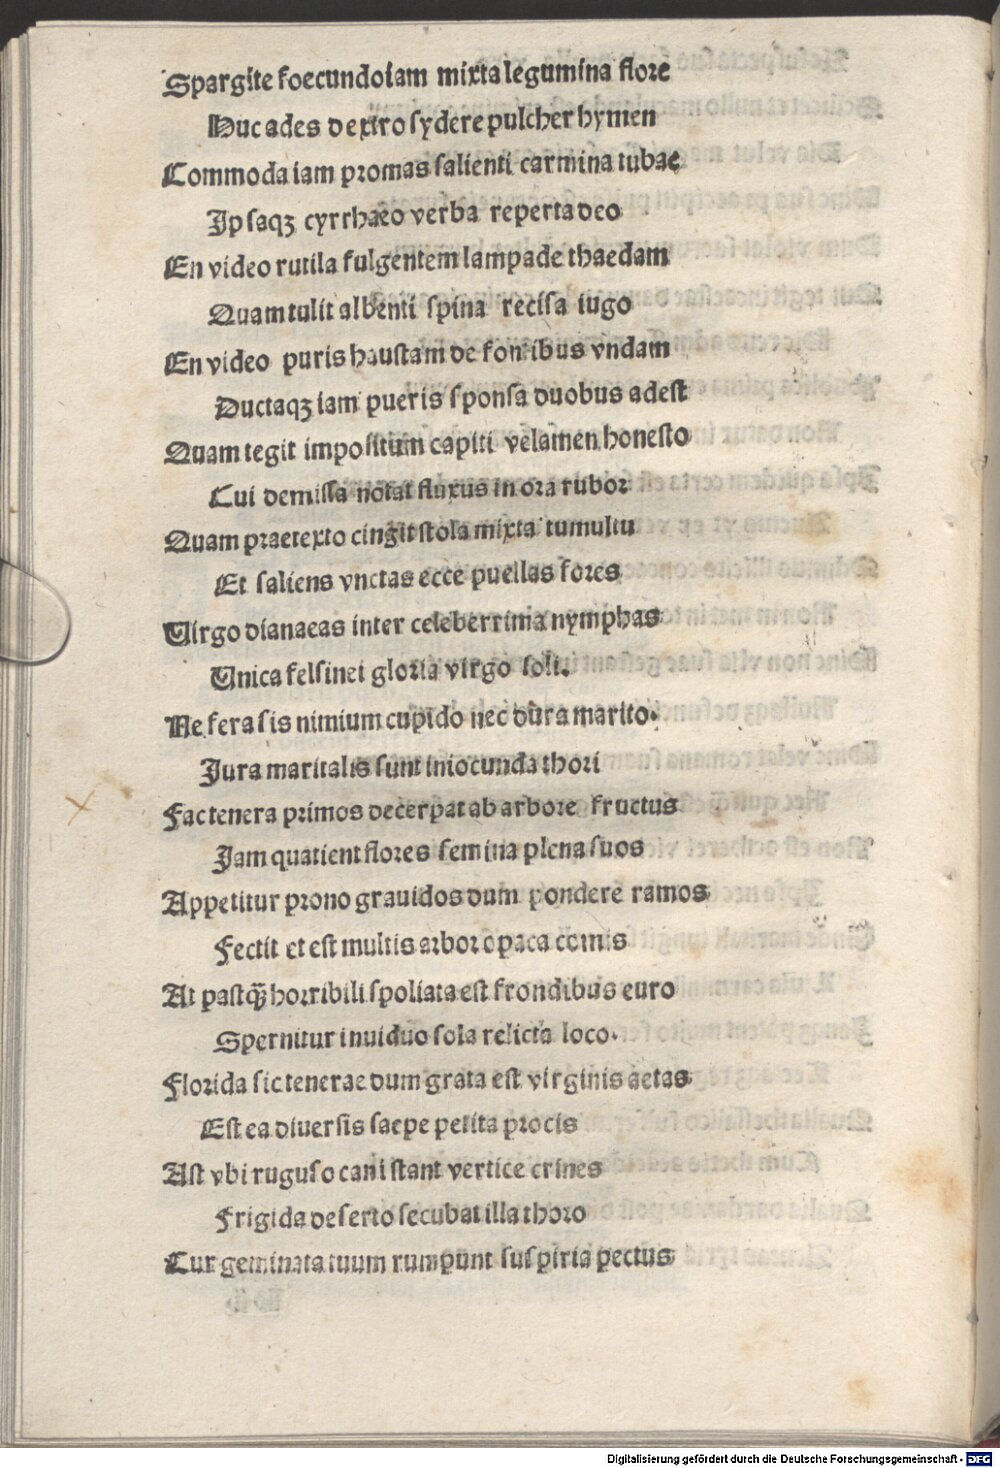 Spargite foecundo iam mixta legumina flore
Huc ades dextro sydere pulcher hymen
Commoda iam promas salienti carmina tubae
Ipsaqꝫ cyrrhaeo verba reperta deo
En video rutila fulgentem lampade thaedam
Quam tulit albenti spina recisa iugo
En video puris haustam de fontibus vndam
Ductaqꝫ iam pueris sponsa duobus adest
Quam tegit impositum capiti velamen honesto
Cui demissa notat fluxus in ora rubor
Quam praetexto cingit stola mixta tumultu
Et saliens vnctas ecce puellas fores
Virgo dianaeas inter celeberrima nymphas
Vnica felsinei gloria virgo soli.
Ne fera sis nimium cupido nec dura marito.
Jura maritalis sunt iniocunda thori
Fac tenera primos decerpat ab arbore fructus
Jam quatient flores semina plena suos
Appetitur prono grauidos dum pondere ramos
Fectit et est multis arbor opaca comis
At pastq̃ horribili spoliata est frondibus euro
Spernitur inuiduo sola relicta loco.
Florida sic tenerae dum grata est virginis aetas
Est ea diuersis saepe petita procis
Ast vbi ruguso cani stant vertice crines
Frigida deserto secubat illa thoro
Cur geminata tuum rumpunt suspiria pectus
Digitalisierung gefördert durch die Deutsche Forschungsgemeinschaft - DFG